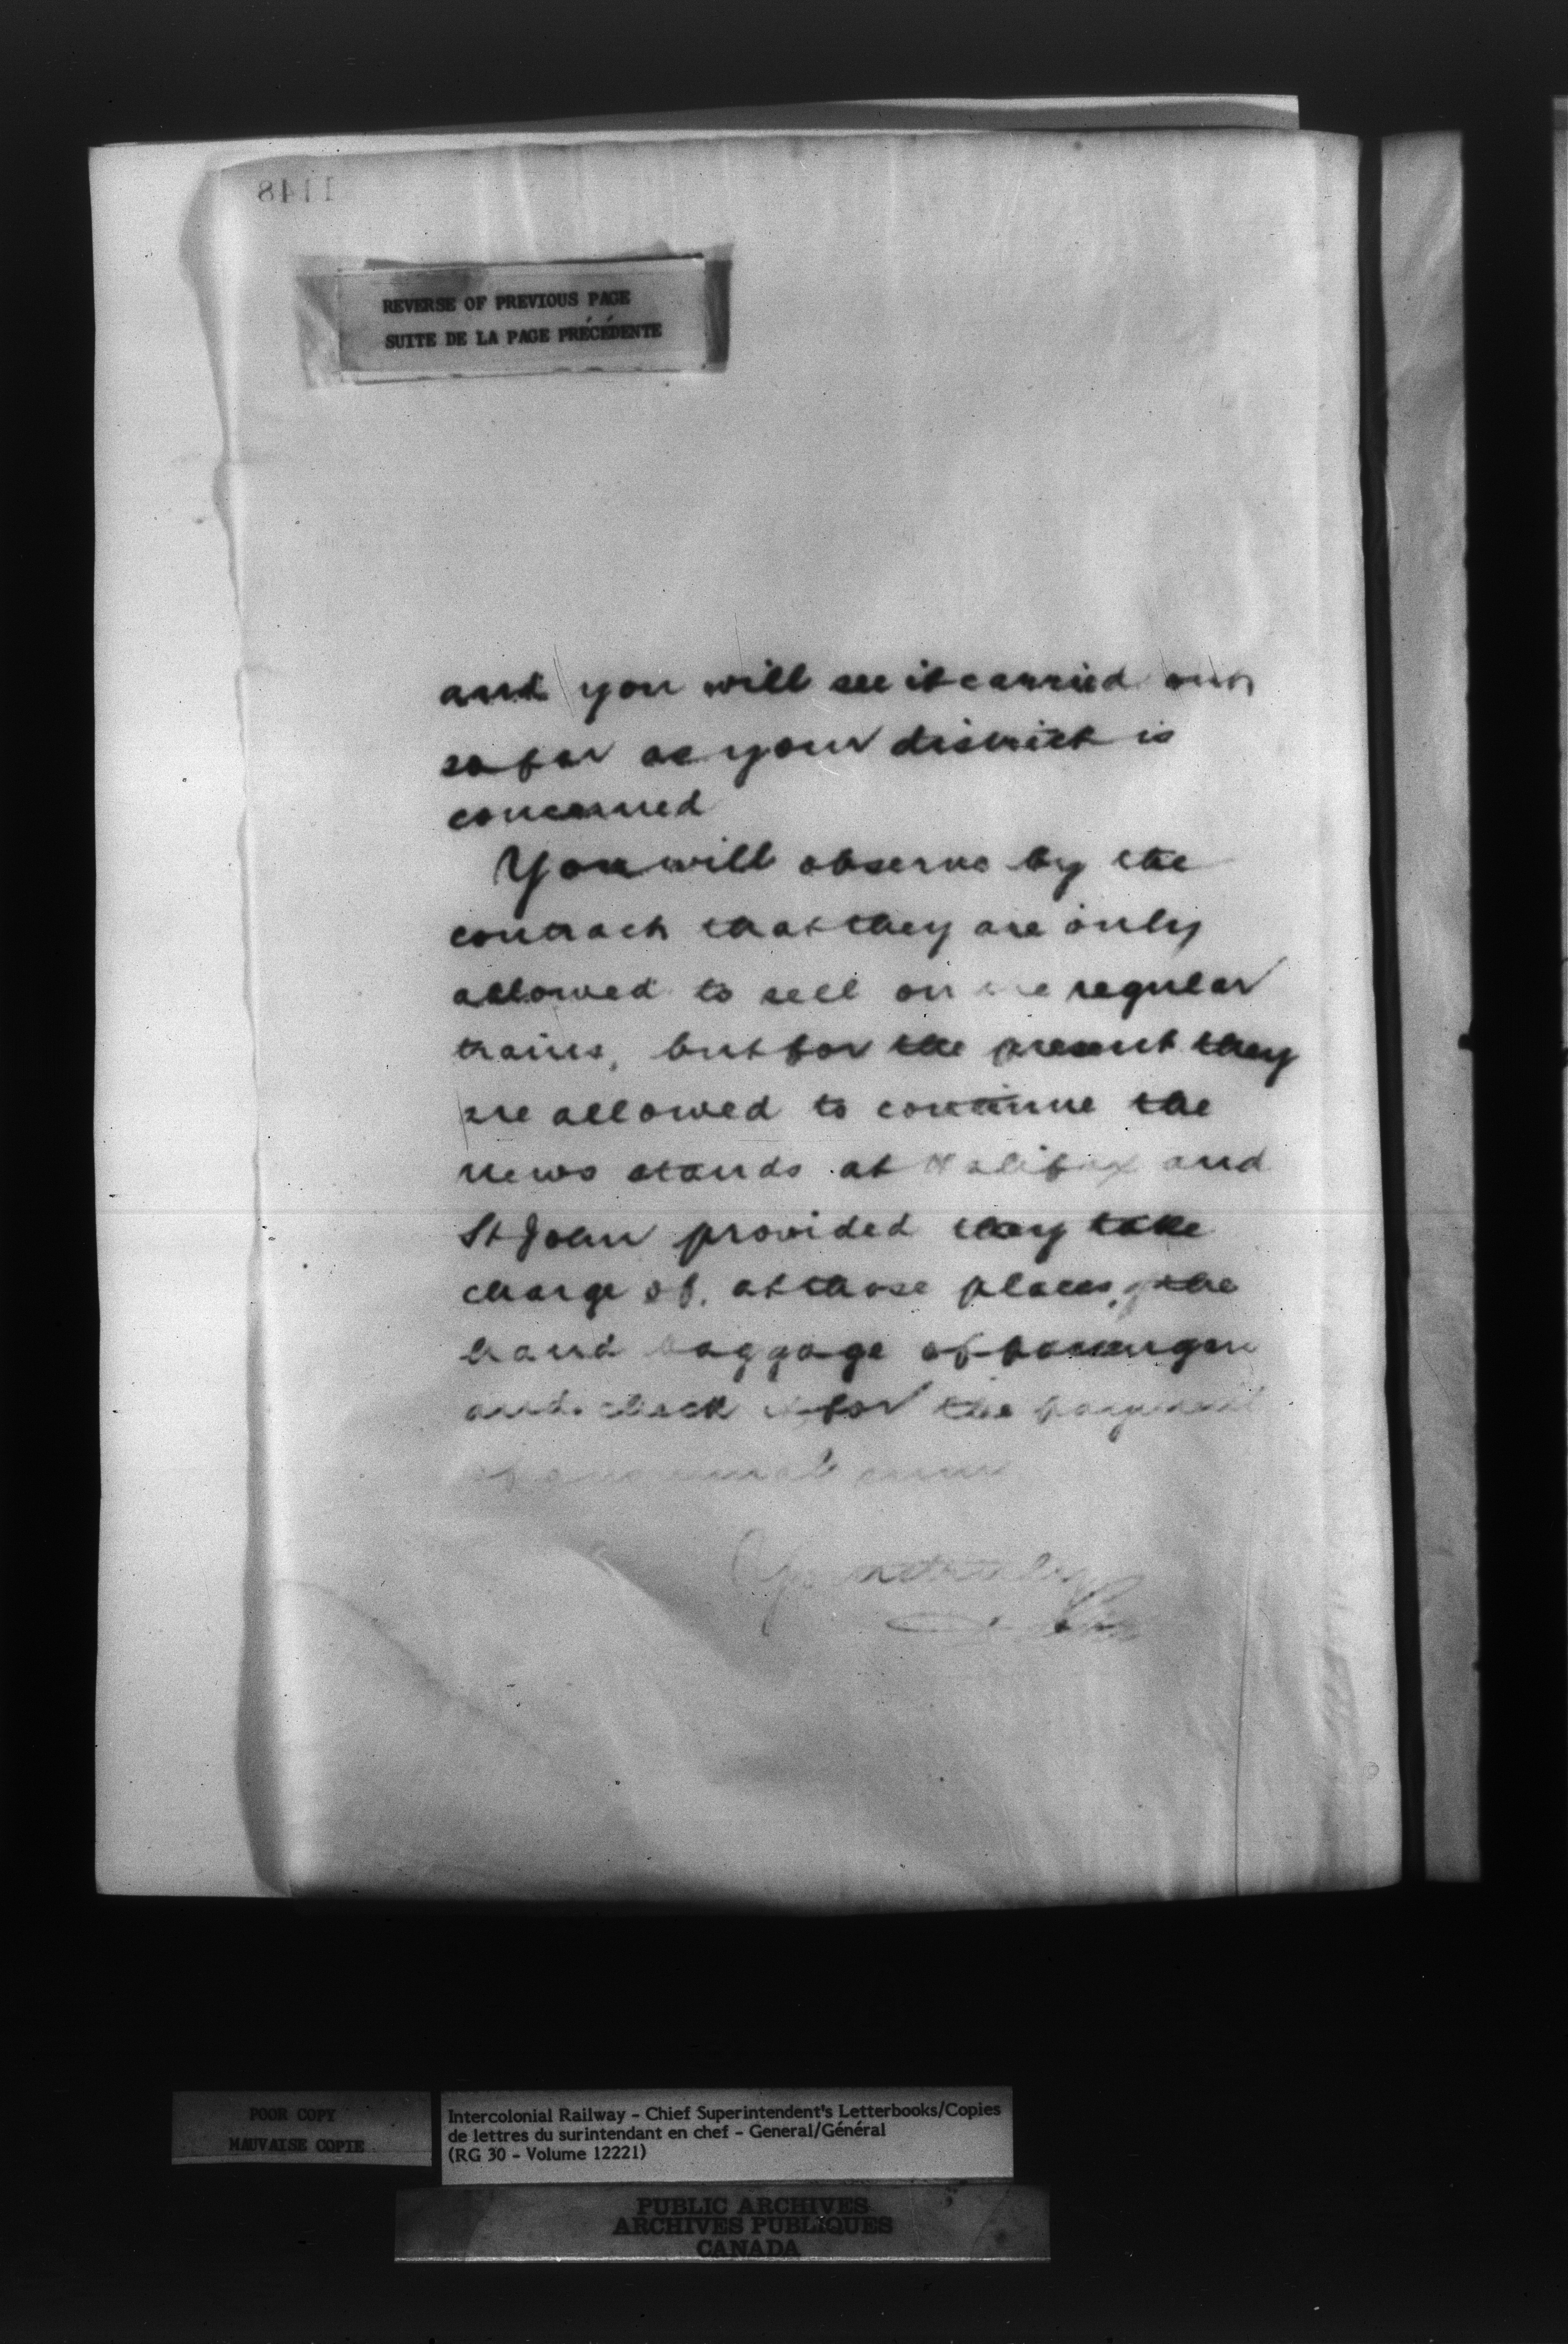 1148
REVERSE OF PREVIOUS PAGE
SUITE DE LA PAGE PRÉCÉDENTE
and you will see it carried out
so far as your district is
concerned
You will observe by the
contract that they are only
allowed to sell on the regular
trains, but for the present they
are allowed to continue the
news stands at Halifax and
St John provided they take
charge of, at those places, the
hand baggage of passengers
and check it for the payment
of a small sum
Yours truly
POOR COPY
MAUVAISE COPIE
Intercolonial Railway - Chief Superintendent's Letterbooks/Copies
de lettres du surintendant en chef - General/Général
(RG 30 - Volume 12221)
PUBLIC ARCHIVES
ARCHIVES PUBLIQUES
CANADA